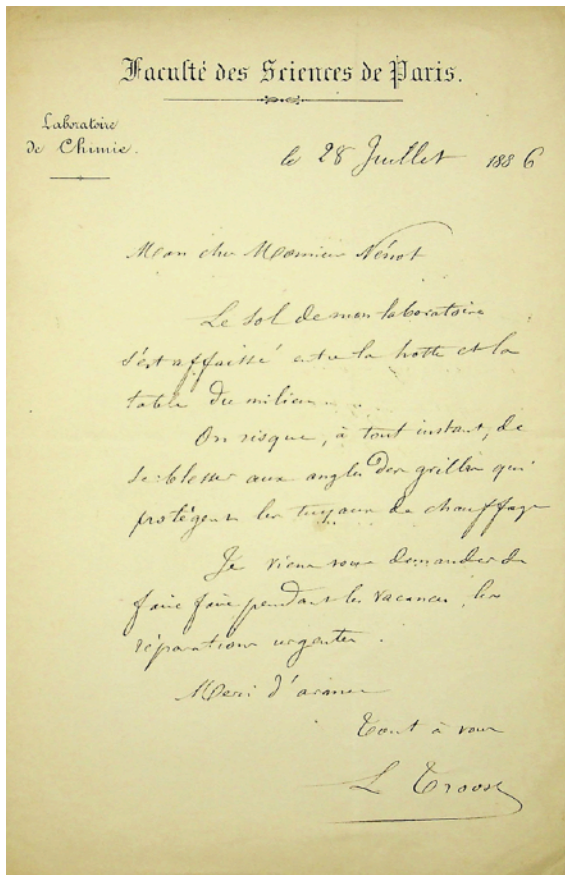 Faculté des Sciences de Paris.
Laboratoire
de Chimie.
le 28 Juillet 1886
Mon cher Monsieur Nénot
Le sol de mon laboratoire
s'est affaissé entre la hotte et la
table du milieu.
On risque, à tout instant, de
se blesser aux angles des grilles qui
protègent les tuyaux de chauffage
Je viens vous demander de
faire faire pendant les vacances, les
réparations urgentes.
Merci d'avance
Tout à vous
L Troost